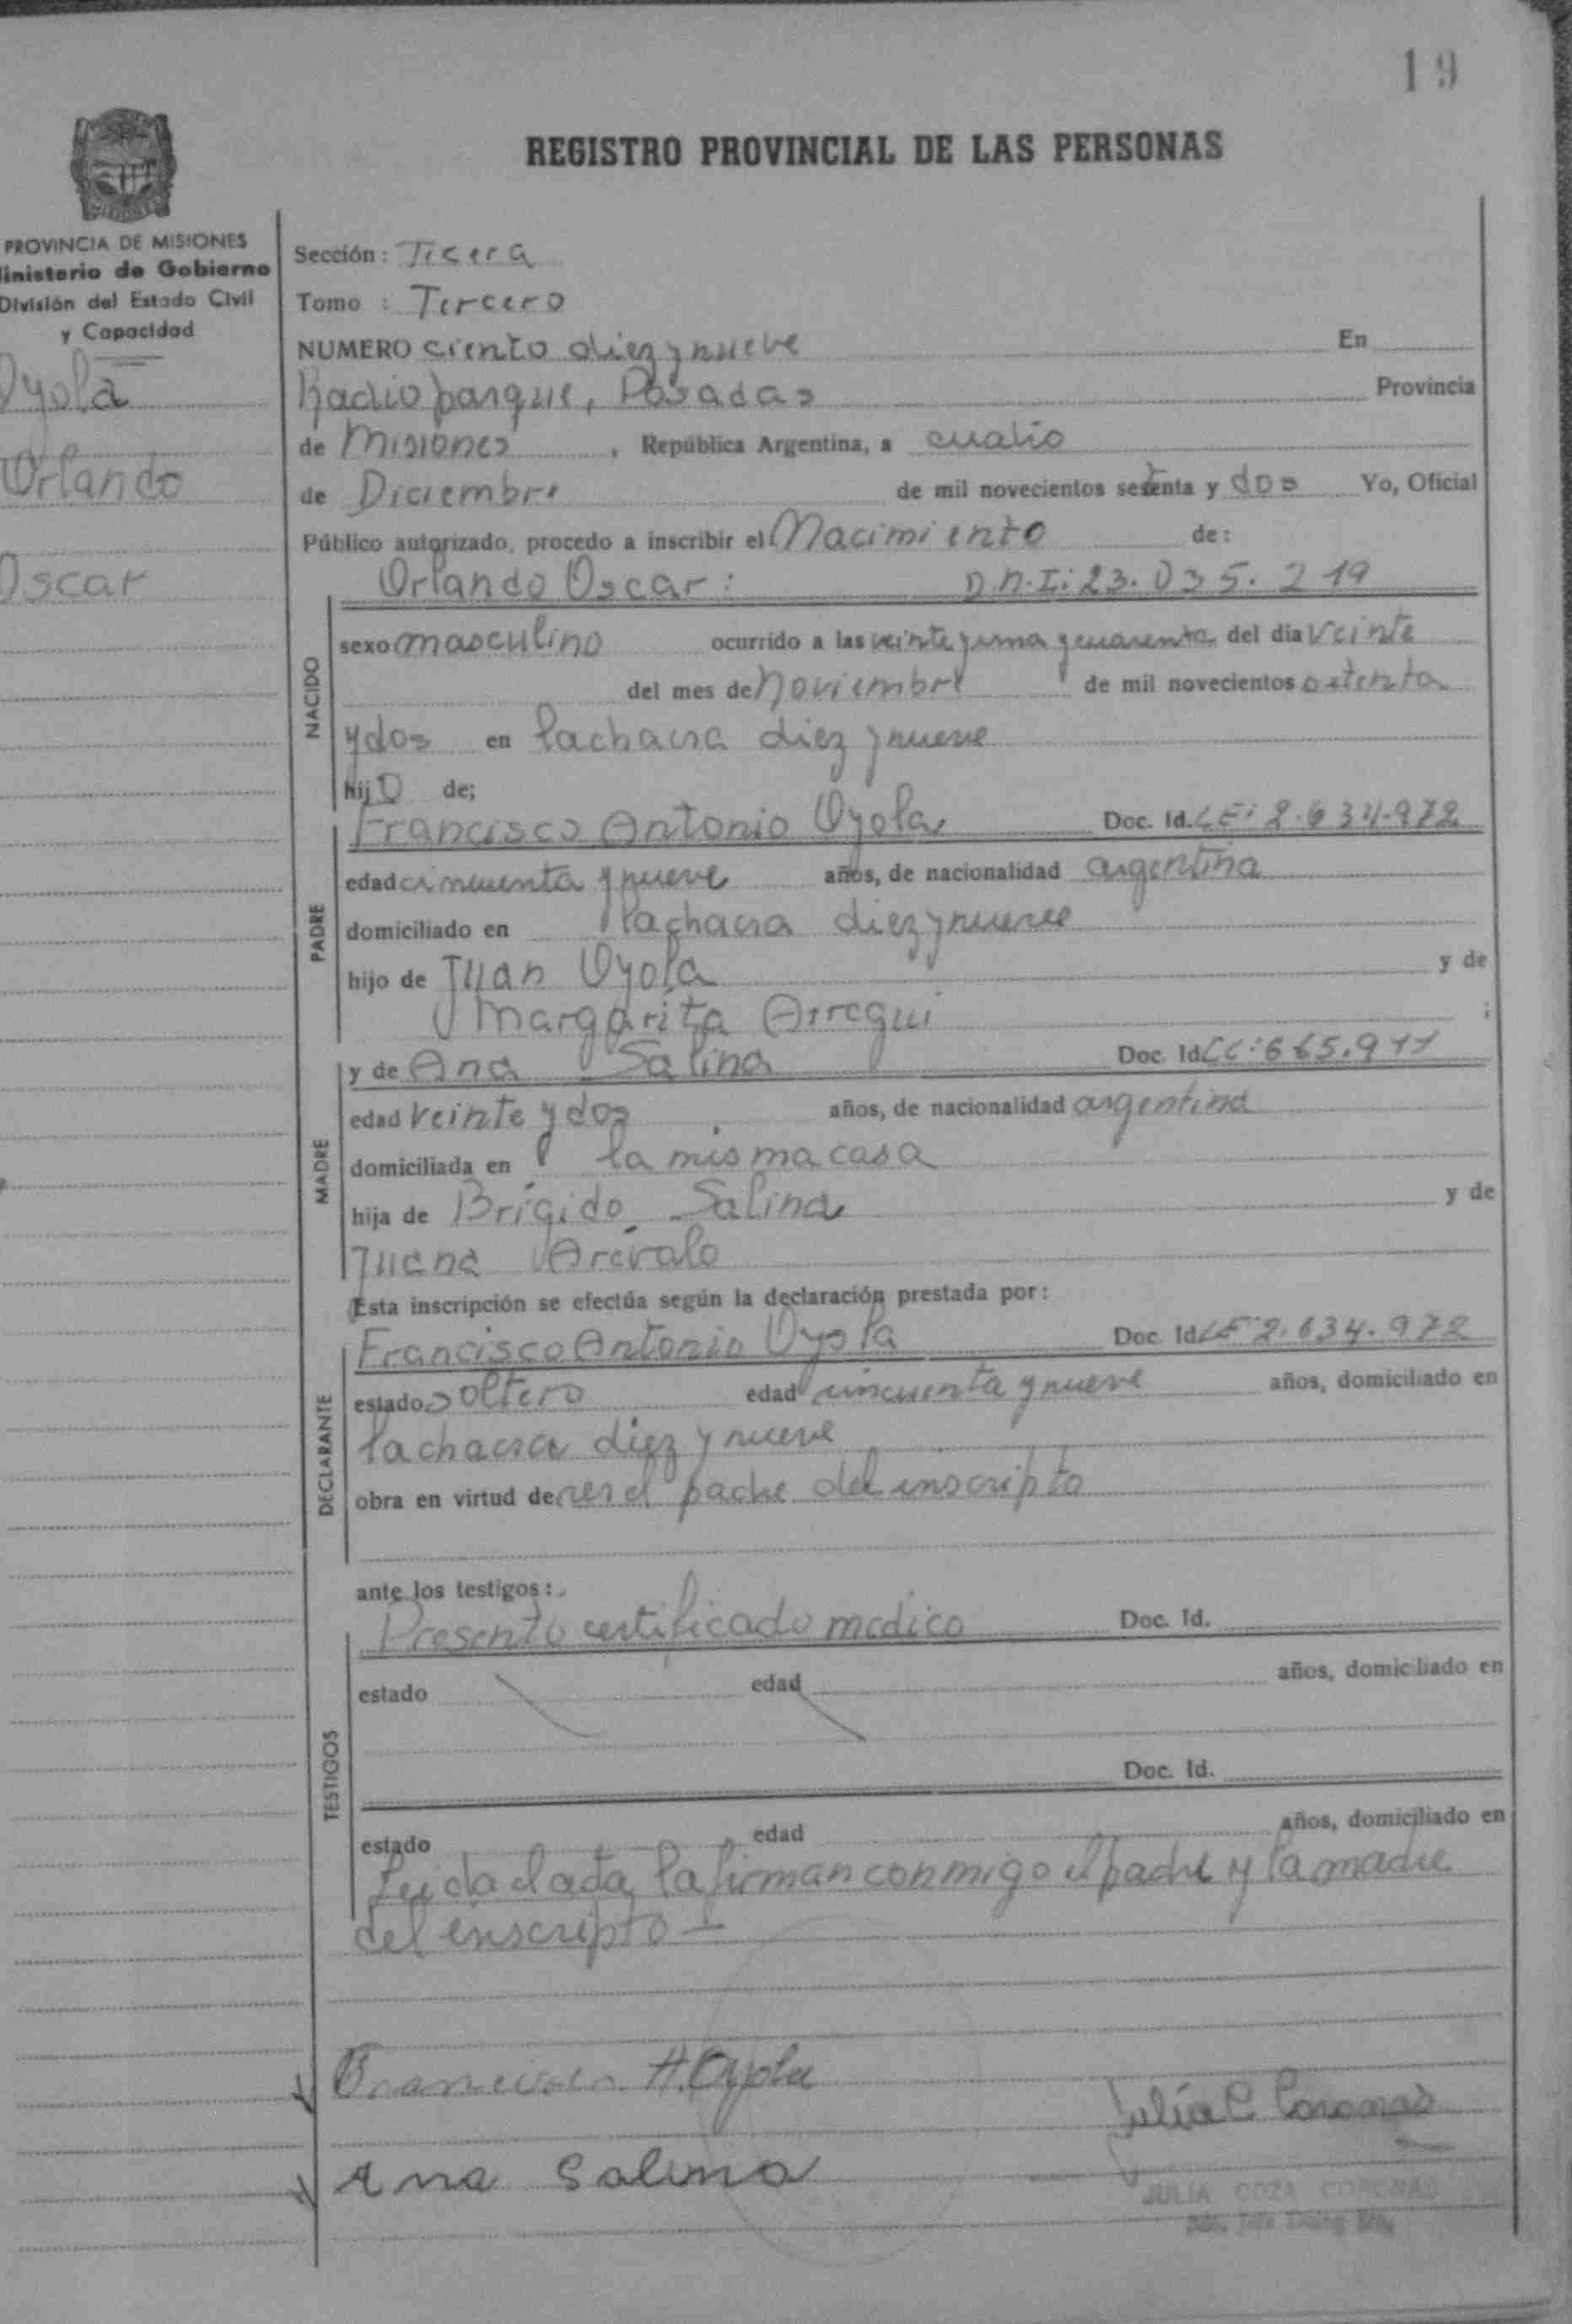 19
REGISTRO PROVINCIAL DE LAS PERSONAS
PROVINCIA DE MISIONES
Ministerio de Gobierno
División del Estado Civil
y Capacidad
Oyola
Orlando
Oscar
Sección: Tercera
Tomo : Tercero
NUMERO ciento diez y nueve En
Radio parque, Posadas Provincia
de Misiones , República Argentina, a cuatro
de Diciembre de mil novecientos setenta y dos Yo, Oficial
Público autorizado, procedo a inscribir el Nacimiento de:
Orlando Oscar: D.N.I: 23.035.219
NACIDO
sexo masculino ocurrido a las veinte y una y cuarenta del día veinte
del mes de Noviembre de mil novecientos setenta
y dos en la chacra diez y nueve
hijo de;
PADRE
Francisco Antonio Oyola Doc. Id. LE: 2.634.972
edad cincuenta y nueve años, de nacionalidad argentina
domiciliado en la chacra diez y nueve
hijo de Juan Oyola y de
Margarita Arregui ;
MADRE
y de Ana Salina Doc. Id. CC: 665.911
edad veinte y dos años, de nacionalidad argentina
domiciliada en la misma casa
hija de Brígido Salina y de
Juana Arévalo
Esta inscripción se efectúa según la declaración prestada por:
DECLARANTE
Francisco Antonio Oyola Doc. Id. LE 2.634.972
estado soltero edad cincuenta y nueve años, domiciliado en
la chacra diez y nueve
obra en virtud de ser el padre del inscripto
ante los testigos:
TESTIGOS
Presentó certificado medico Doc. Id.
estado edad años, domiciliado en
Doc. Id.
estado edad años, domiciliado en
Leida el acta, la firman conmigo el padre y la madre
del inscripto -
Francisco A. Oyola
Julia C. Coronas
Ana Salina
JULIA COZA CORONAS